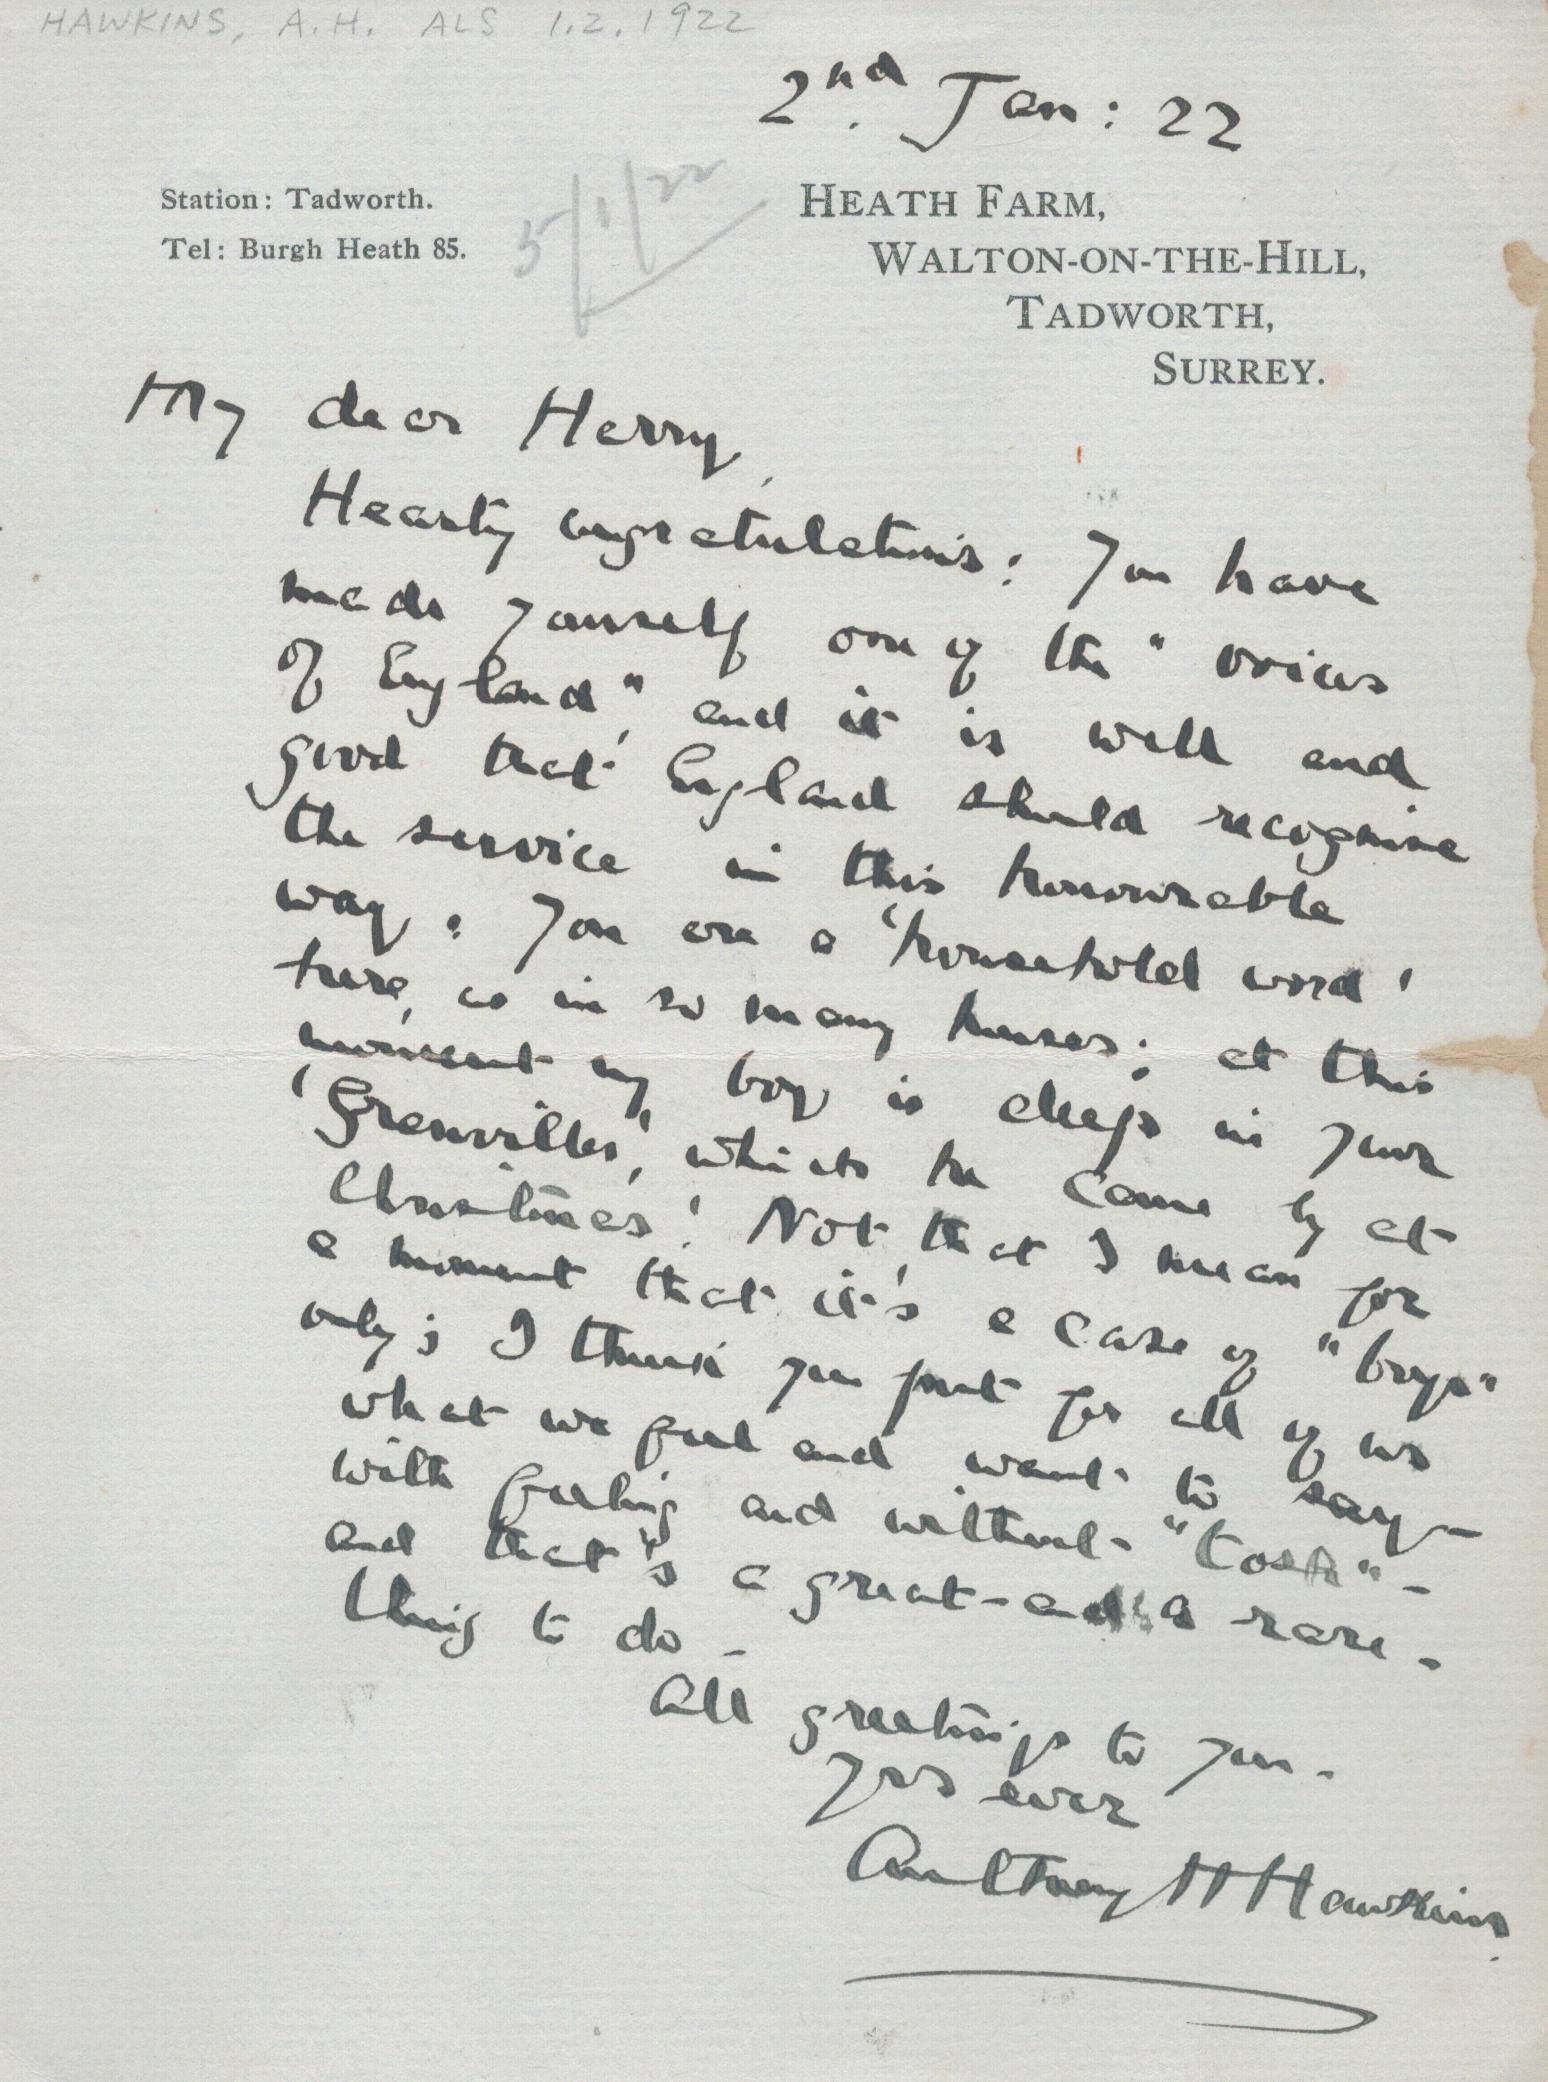 HAWKINS, A.H. ALS 1.2.1922
2nd. Jan: 22
Station: Tadworth.
Tel: Burgh Heath 85.
5/1/22
HEATH FARM,
WALTON-ON-THE-HILL,
TADWORTH,
SURREY.
My dear Henry,
Hearty congratulations: You have
made yourself one of the "voices
of England", and it is well and
good that England should recognise
the service in this honourable
way: You are a 'household word'
here, as in so many houses; at this
moment my boy is deep in your
'Grenvilles', which he came by at
Christmas! Not that I mean for
a moment that it's a case of "boys"
only; I think you put for all of us
what we feel and want to say –
with feeling and without "tosh" –
and that's a great – and a rare –
thing to do –
All greetings to you –
Yrs ever
Anthony H Hawkins.